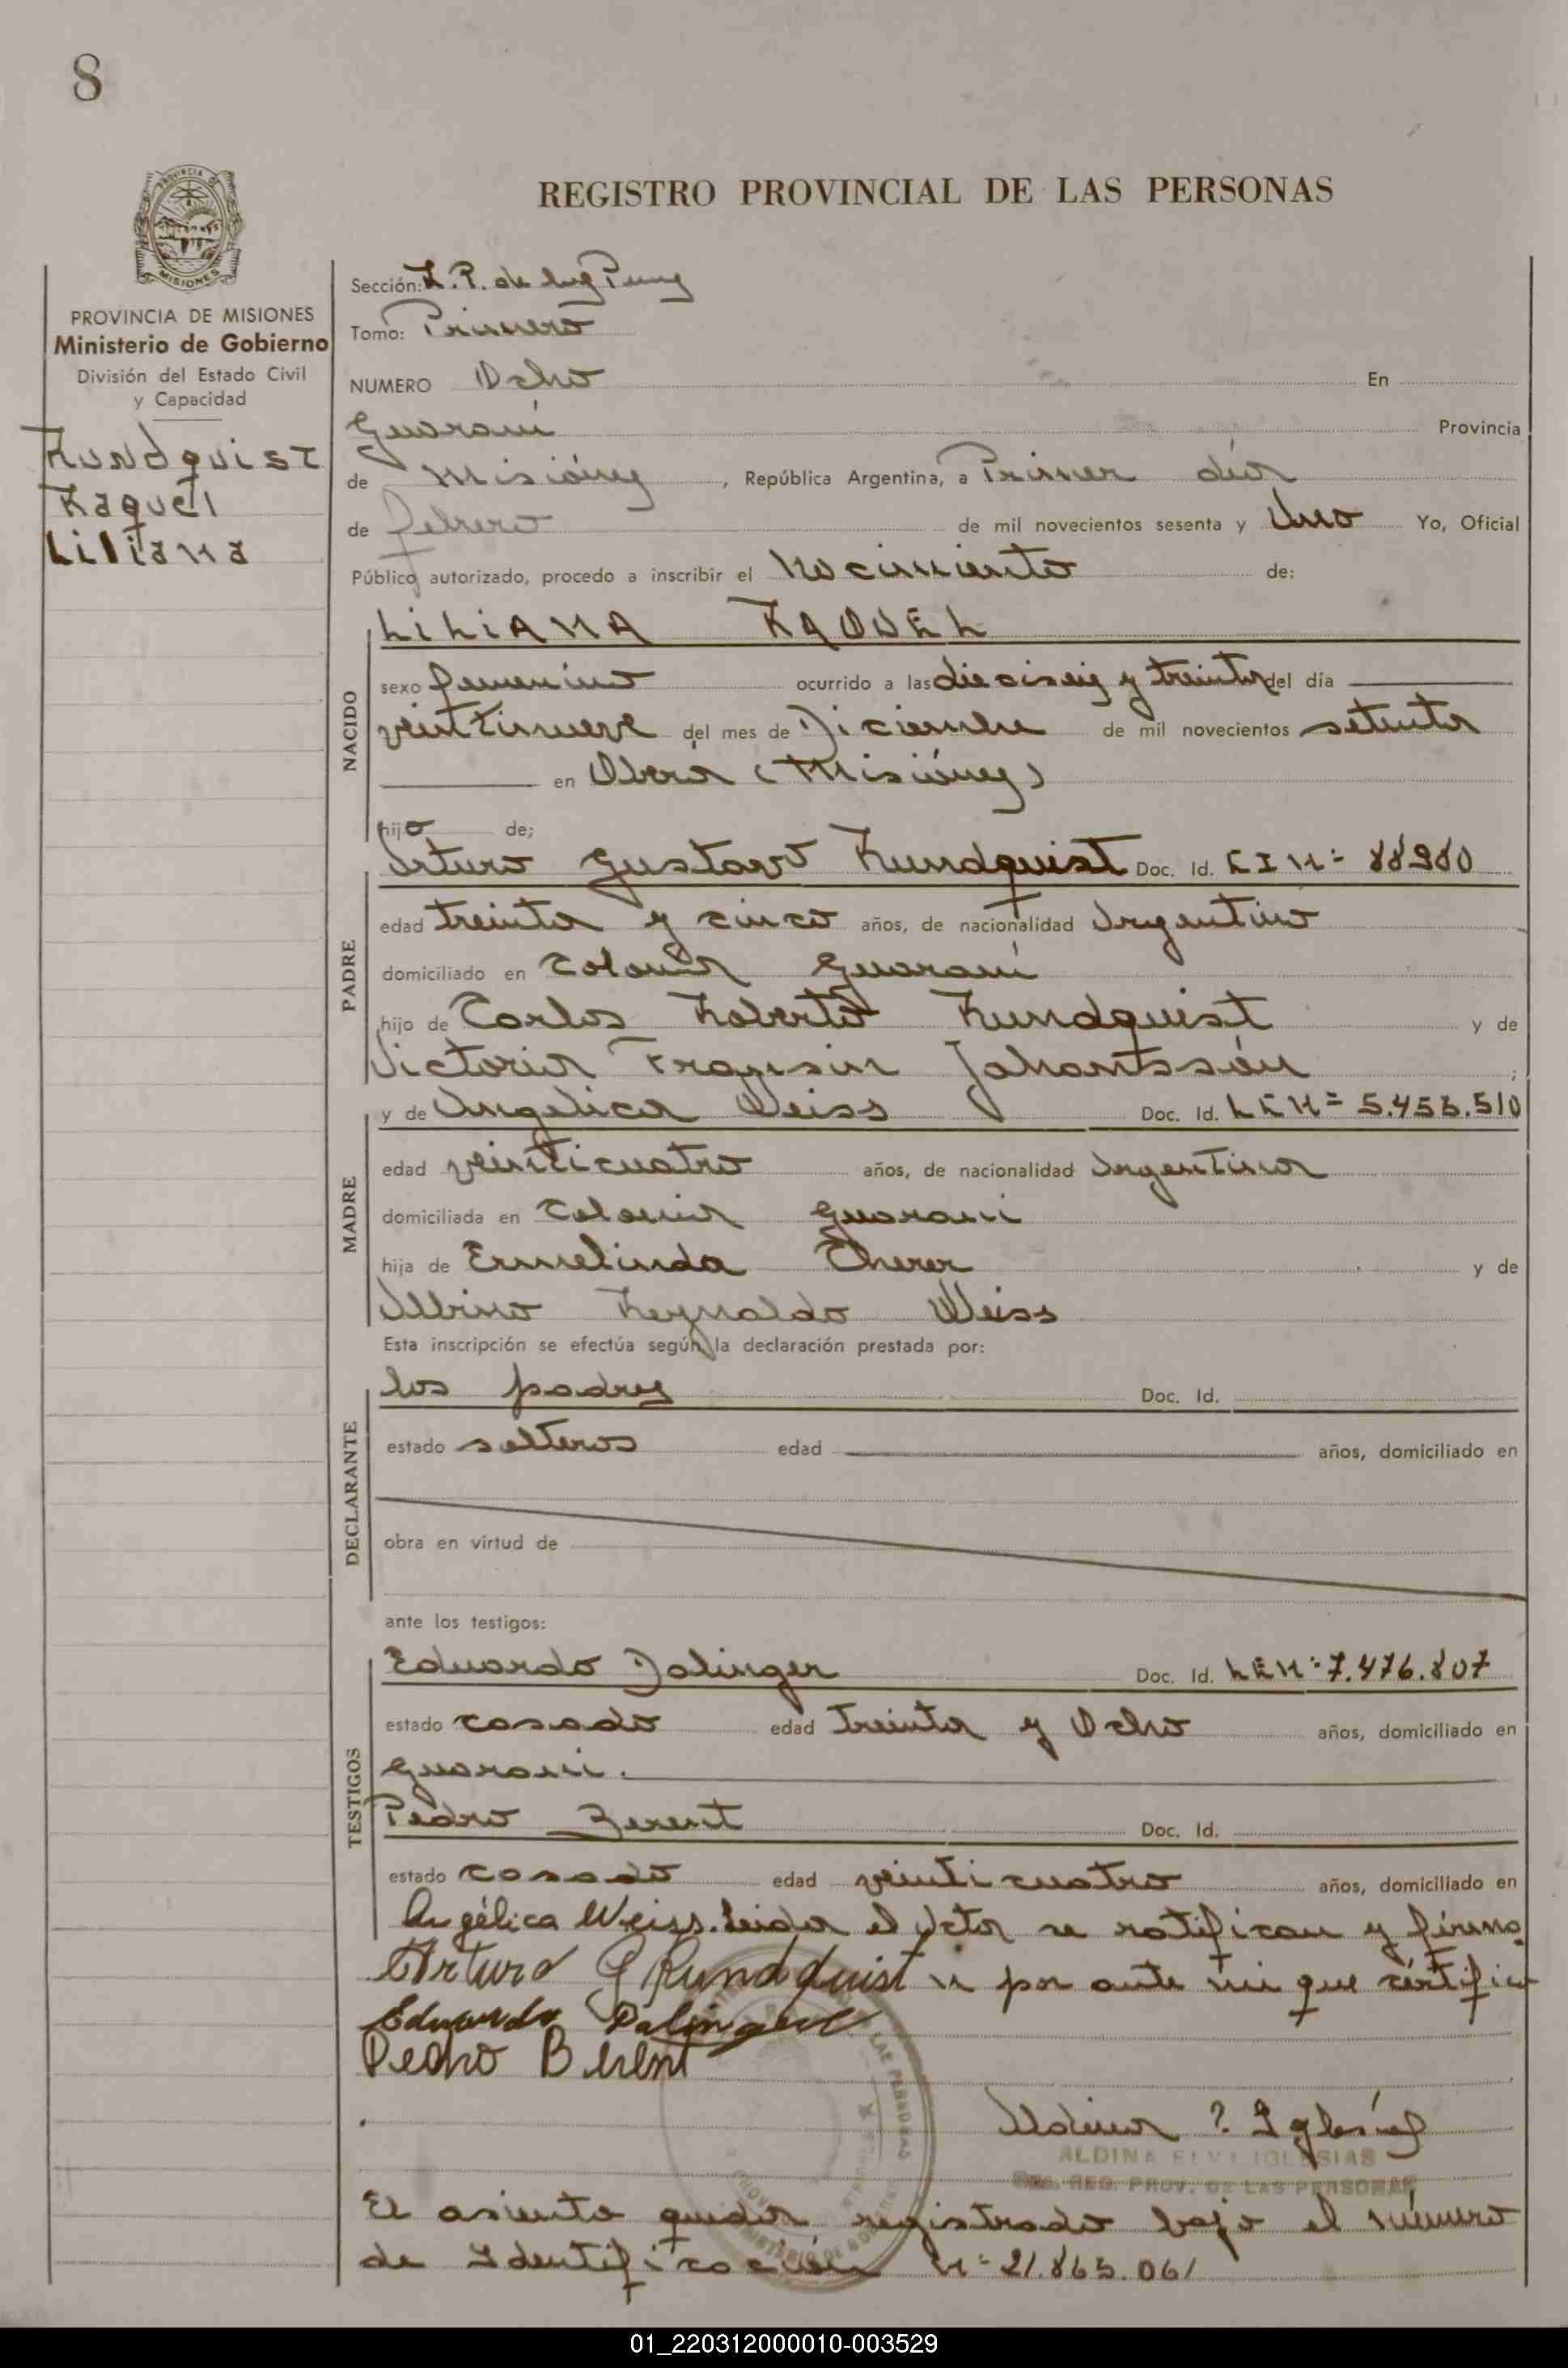 8
PROVINCIA DE
MISIONES
REGISTRO PROVINCIAL DE LAS PERSONAS
PROVINCIA DE MISIONES
Ministerio de Gobierno
División del Estado Civil
y Capacidad
Rundquist
Raquel
Liliana
Sección: R.P. de las
Tomo: Primero
NUMERO Ocho En
Guaraní Provincia
de Misiónes, República Argentina, a Primer día
de febrero de mil novecientos sesenta y Uno Yo, Oficial
Público autorizado, procedo a inscribir el Nacimiento de:
NACIDO
LILIANA RAQUEL
sexo femenino ocurrido a las dieciseis y treinta del día
veintinueve del mes de Diciembre de mil novecientos setenta
en Obera (Misiónes)
hijo de;
PADRE
Arturo Gustavo Rundquist Doc. Id.
edad treinta y cinco años, de nacionalidad Argentino
domiciliado en Colonia Guaraní
hijo de Carlos Roberto Rundquist y de
Victoria Johantssón;
MADRE
y de Angelica Weiss Doc. Id.
edad veinticuatro años, de nacionalidad Argentina
domiciliada en Colonia Guarani
hija de Ermelinda y de
Albino Reynaldo Weiss
Esta inscripción se efectúa según la declaración prestada por:
DECLARANTE
los padres Doc. Id.
estado solteros edad años, domiciliado en
obra en virtud de
ante los testigos:
TESTIGOS
Eduardo Dalinger Doc. Id. LEN= 7.476.807
estado casado edad treinta y Ocho años, domiciliado en
Guarani.
Pedro Berent Doc. Id.
estado casado edad veinticuatro años, domiciliado en
Angélica Weiss. Leida el Acta se ratifican y firma
Arturo G Rundquist n por ante mi que certifico
Eduardo Dalinger
Pedro Berent
Aldina E Iglesias
ALDINA ELVA IGLESIAS
REG. PROV. DE LAS PERSONAS
El asiento queda registrado bajo el número
de Identificación N= 21.863.061
01_220312000010-003529